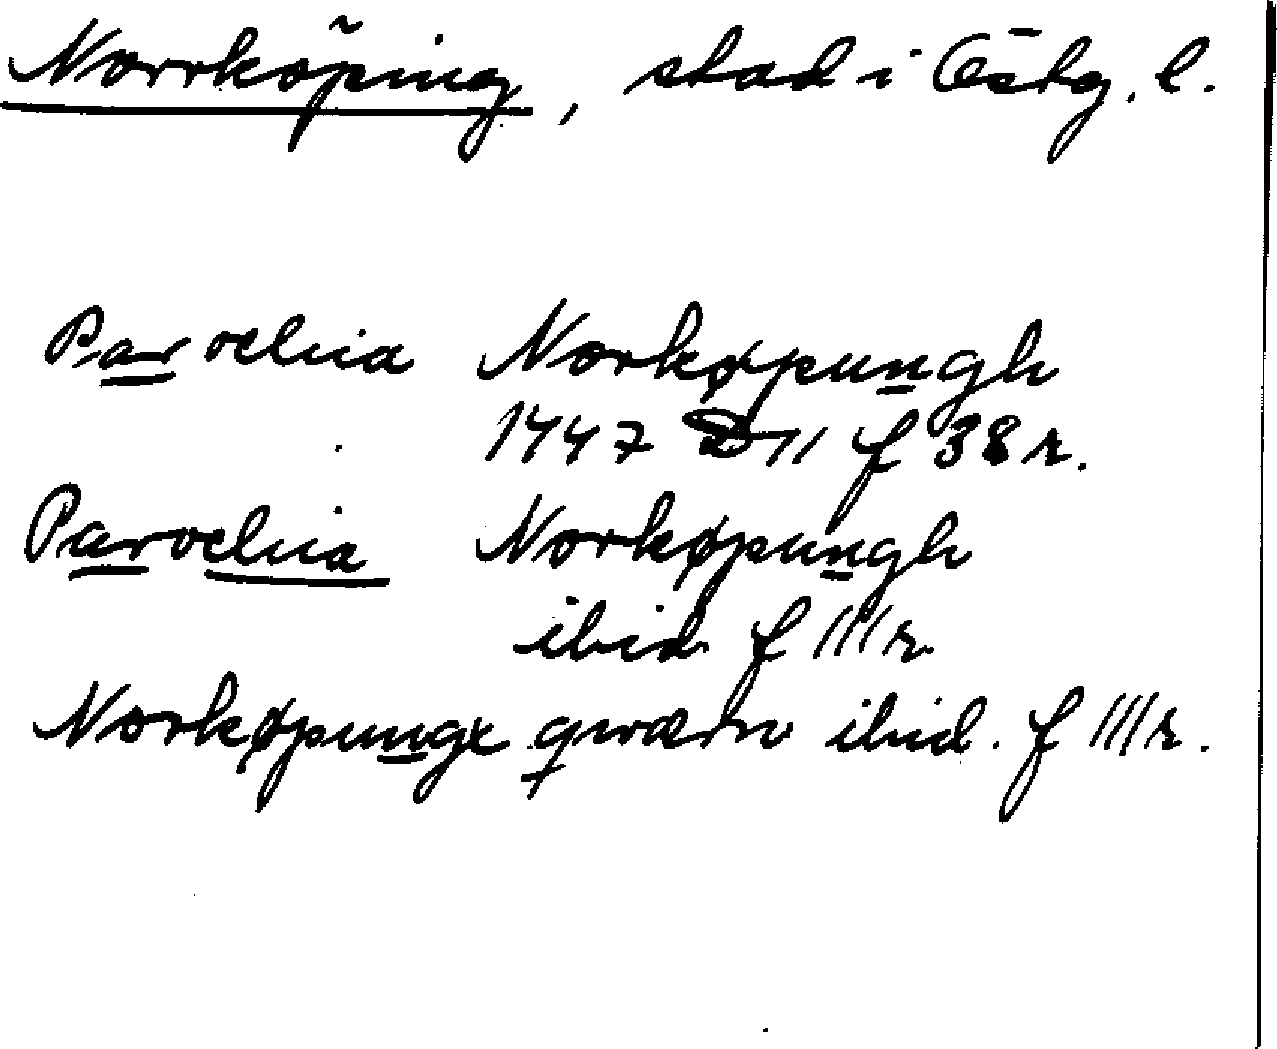 Norrköping, stad i Östg. l.
Parochia Norkøpungh
1447 D11 f 38 r.
Parochia Norkøpungh
ibid f 111 r.
Norkøpungx qwærn ibid. f 111 r.